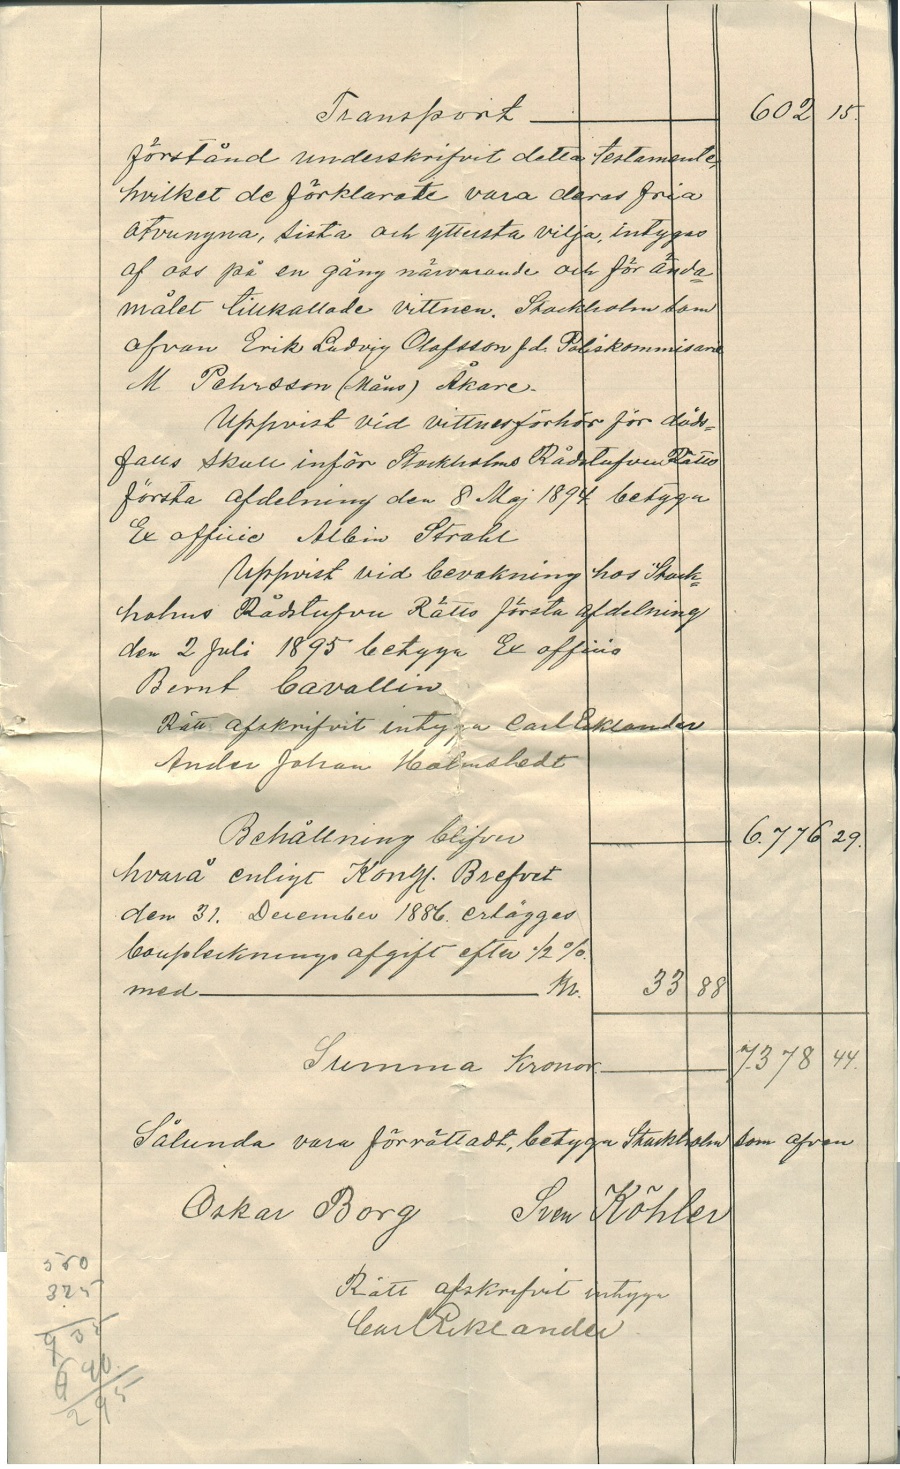 Transport 602 15.
förstånd underskrifvit detta testamente,
hvilket de förklarade vara deras fria
otvungna, sista och yttersta vilja, intygas
af oss på en gång närvarande och för ända=
målet tillkallade vittnen. Stockholm som
ofvan Erik Ludvig Olofsson f.d. Poliskommisarie
M Pehrsson (Måns) Åkare.
Uppvist vid vittnesförhör för döds=
falls skull inför Stockholms Rådstufvu Rätts
första afdelning den 8 Maj 1894 betygar
Ex officio Albin Strahl
Uppvist vid bevakning hos Stock=
holms Rådstufvu Rätts första afdelning
den 2 Juli 1895 betygar Ex officio
Bernt Cavallin
Rätt afskrifvit intyga Carl Eklander
Anders Johan Holmstedt
Behållning blifver 6.776 29.
hvarå enligt Kongl. Brefvet
den 31. December 1886. erlägges
afgift efter 1/2 %.
med Kr. 33 88
Summa Kronor 7.378 44.
Sålunda vara förrättadt, betyga Stockholm som ofvan
Oskar Borg Sven Köhler
Rätt afskrifvit intyga
Carl Eklander